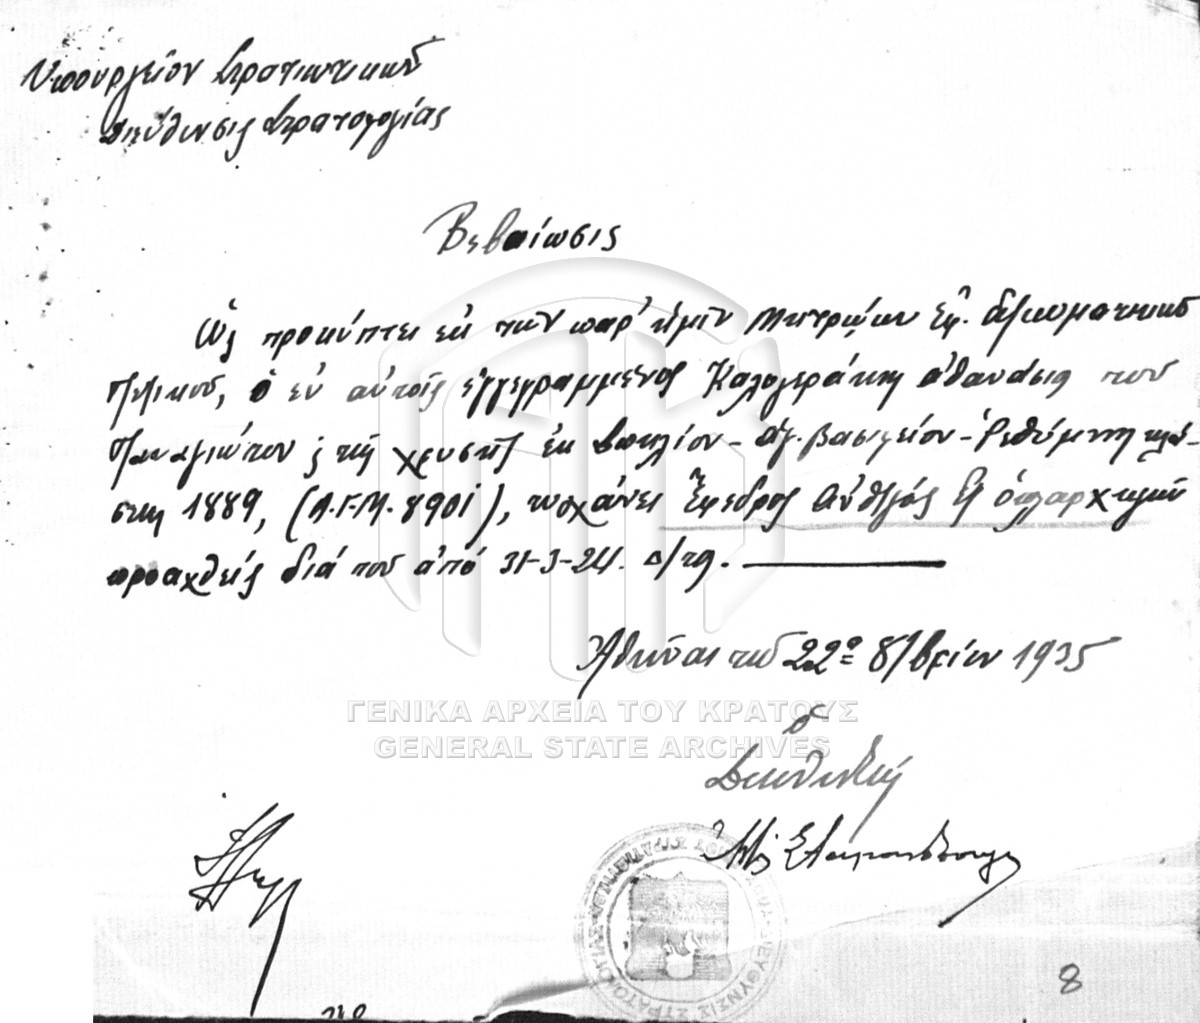 Υπουργείον Στρατιωτικών
Διεύθυνσις Στρατολογίας
Βεβαίωσις
Ως προκύπτει εκ των παρ' ημίν Μητρώων Εφ. αξιωματικών
Πεζικού, ο εν αυτοίς εγγεγραμμένος Καλογεράκης Αθανάσιος του
Παναγιώτου & της Χρυσής εκ - Αγ. Βασιλείου - Ρεθύμνης κλά-
σεως 1889, (Α.Γ.Μ. 8901), τυγχάνει Έφεδρος Ανθλγός εξ οπλαρχηγών
προαχθείς διά του από 31-3-24. Δ/τος.
Αθήναι τη 22α 8/βρίου 1935
Ο
Διευθυντής
ΓΕΝΙΚΑ ΑΡΧΕΙΑ ΤΟΥ ΚΡΑΤΟΥΣ
GENERAL STATE ARCHIVES
8